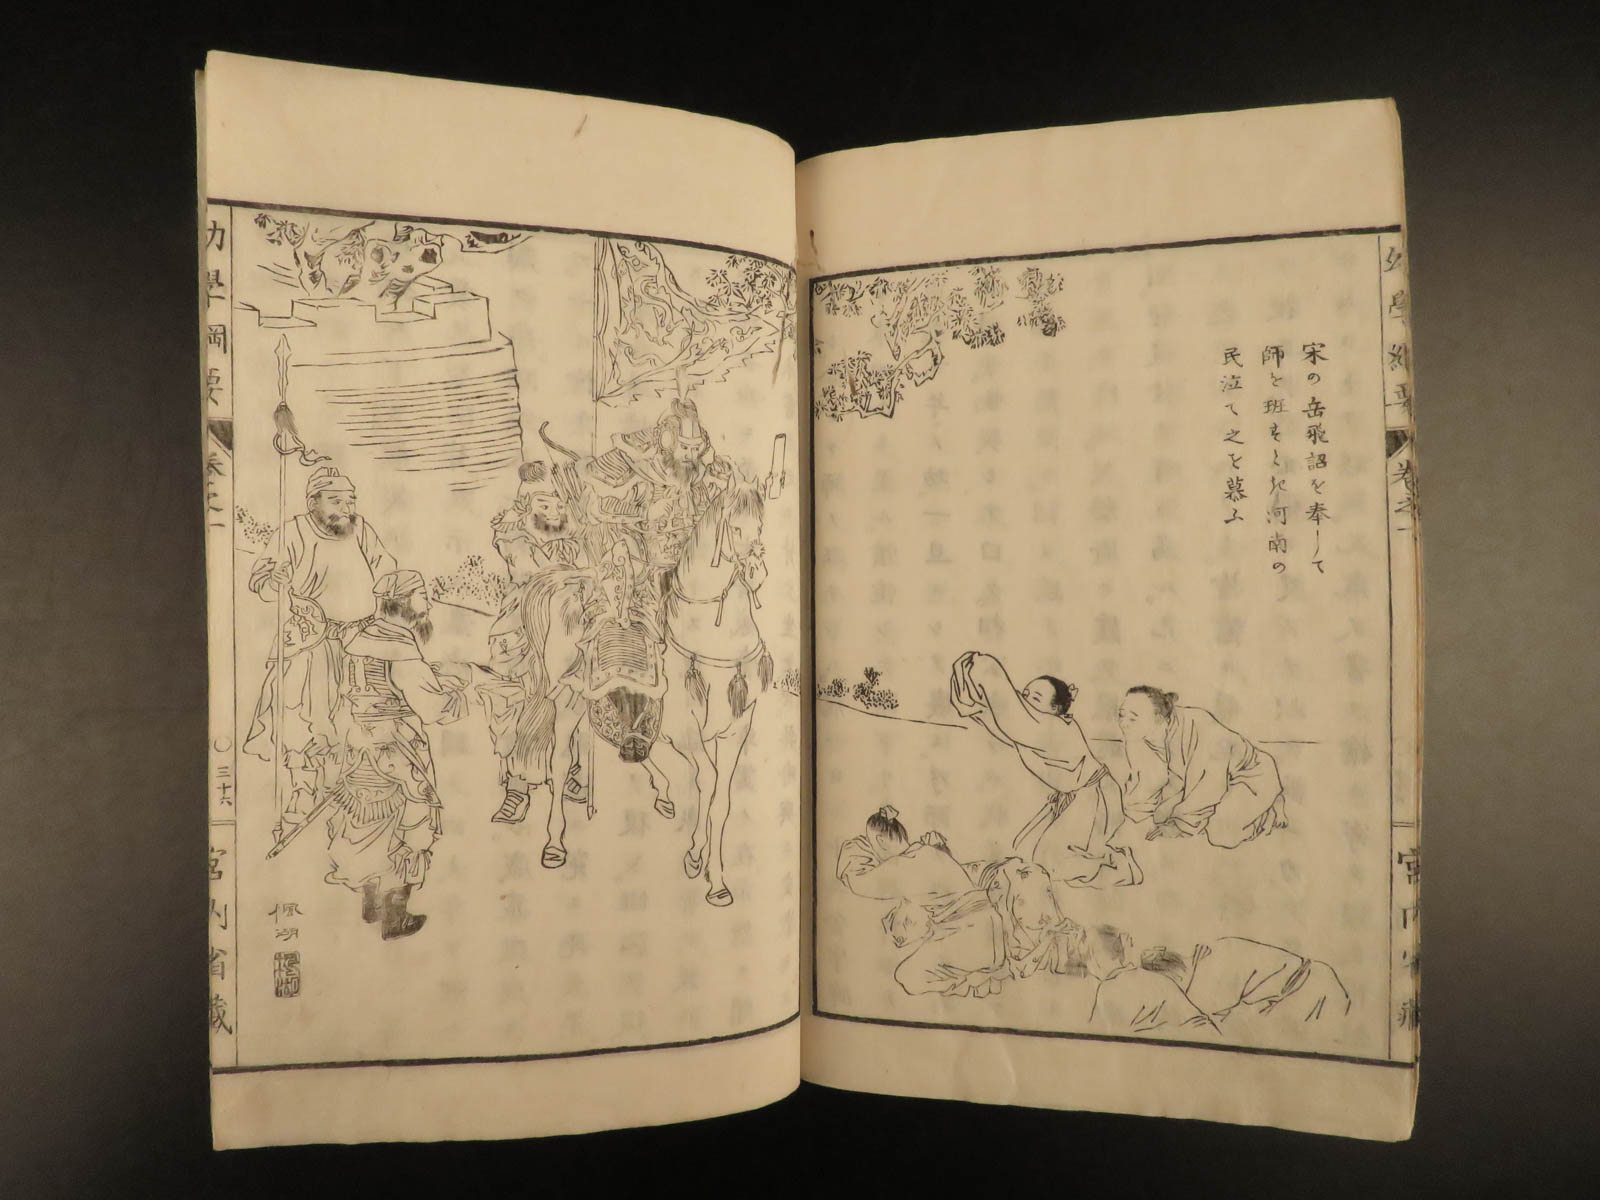 宋の岳飛詔を奉して
師を班すとき河南の
民泣て之を慕ふ
幼學綱要
卷之一
宮内省藏
幼學綱要
卷之一
〇三十六
宮内省藏
佩湖